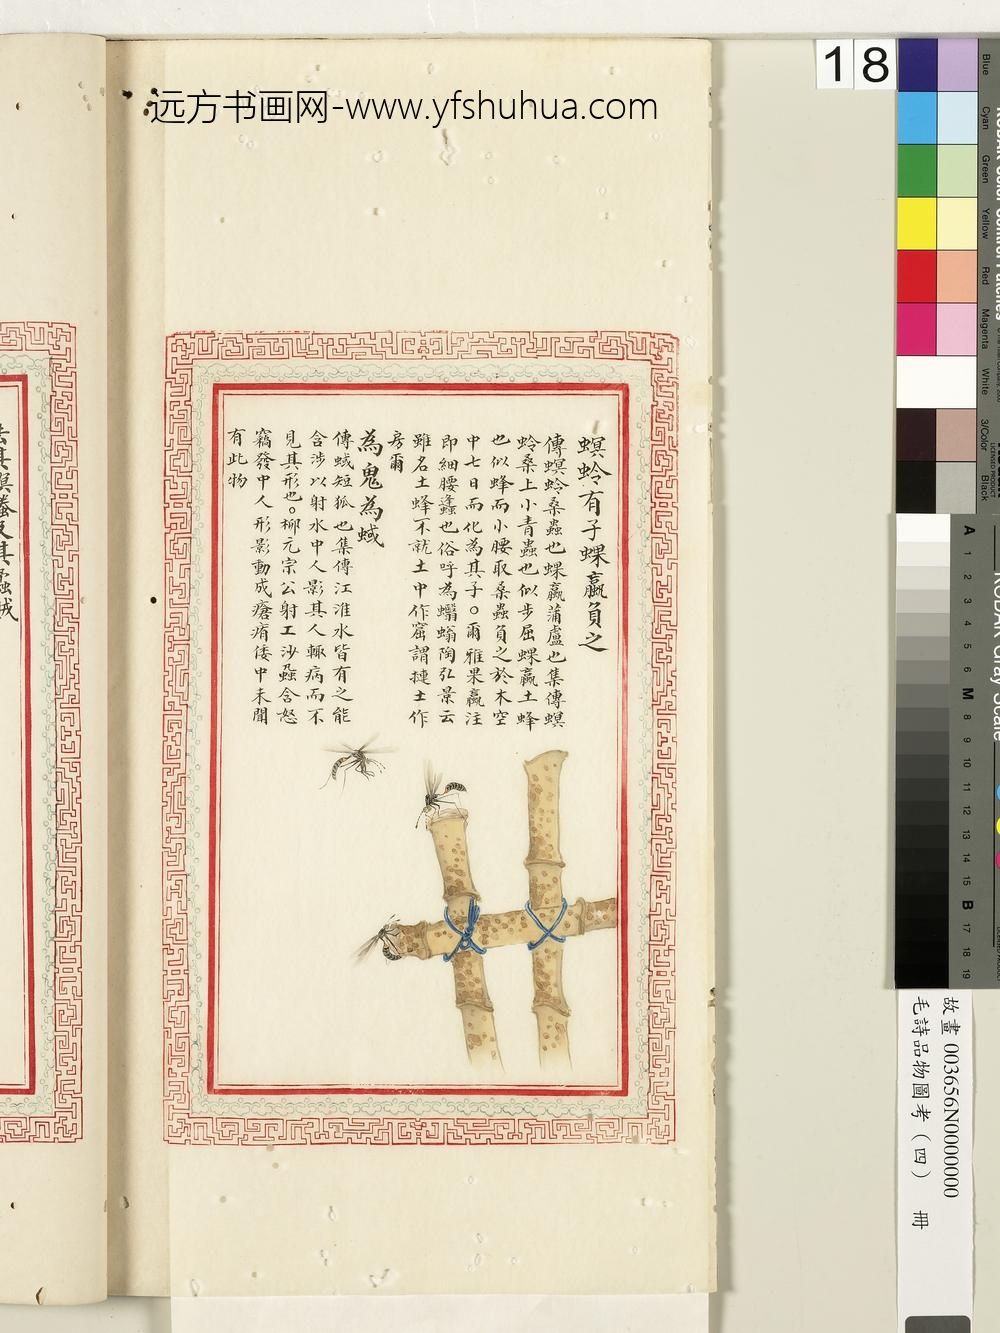 远方书画网-www.yfshuhua.com
18
螟蛉有子蜾蠃負之
傳螟蛉桑蟲也蜾蠃蒲盧也集傳螟
蛉桑上小青蟲也似步屈蜾蠃土蜂
也似蜂而小腰取桑蟲負之於木空
中七日而化為其子○爾雅果蠃注
即細腰蠭也俗呼為蠮螉陶弘景云
雖名土蜂不就土中作窟謂摙土作
房爾
為鬼為蜮
傳蜮短狐也集傳江淮水皆有之能
含沙以射水中人影其人輒病而不
見其形也。柳元宗公射工沙蝨含怒
竊發中人形影動成瘡痏倭中未聞
有此物
去其螟螣及其蟊賊
Blue
Cyan
Green
Yellow
Red
Magenta
White
3/Color
Black
KODAK Gray Scale
A 1 2 3 4 5 6 M 8 9 10 11 12 13 14 15 B 17 18 19
故畫 003656N0000000
毛詩品物圖考(四) 冊